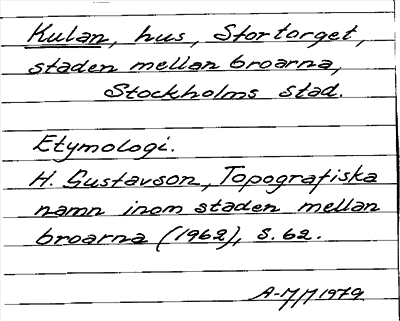 Kulan, hus, Stortorget,
staden mellan broarna,
Stockholms stad.
Etymologi.
H. Gustavson, Topografiska
namn inom staden mellan
broarna (1962), s. 62.
A-MM 1979